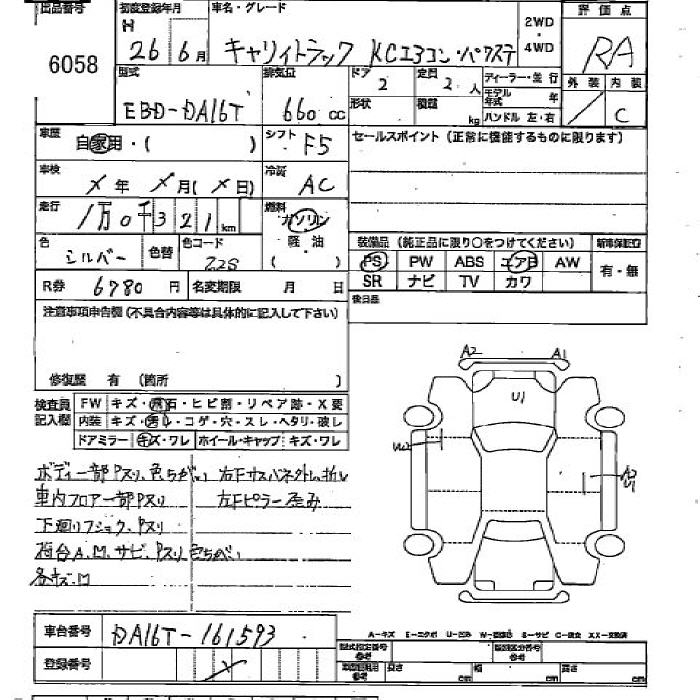 出品番号 初度登録年月 車名・グレード 評価点
6058 H 26年6月 キャリイトラック KCエアコン・パワステ 2WD・4WD RA
型式 排気量 ドア 定員 ディーラー・並行 外装 内装
EBD-DA16T 660 cc 2 2人 モデル年式 年 / C
形状 積載 kg ハンドル 左・右
車歴 自家用・( ) シフト F5 セールスポイント (正常に機能するものに限ります)
車検 ×年 ×月(×日) 冷房 AC
走行 1万0千321km 燃料 ガソリン
軽・油
( )
色 シルバー 色替 色コード Z2S
装備品 (純正品に限り○をつけてください) 新車保証書
PS PW ABS エアB AW 有・無
SR ナビ TV カワ
R券 6780円 名変期限 月 日 後日品
注意事項申告欄 (不具合内容等は具体的に記入して下さい)
修復歴 有 (箇所 )
検査員記入欄 FW キズ・飛石・ヒビ割・リペア跡・X要
内装 キズ・汚レ・コゲ・穴・スレ・ヘタリ・破レ
ドアミラー キズ・ワレ ホイール・キャップ キズ・ワレ
A2 A1
U1
W2
A2
U1
ボディー部Pスリ、色ちがい
車内フロアー部Pスリ
下廻りフショク、Pスリ
荷台A.M.サビ、Pスリ色ちがい
各キズ・M
右Fサスバネ外し、折レ
左Fピラー歪み
車台番号 DA16T-161593
登録番号 ×
A-キズ E-エクボ U-凹み S-サビ C-腐食 XX-交換済
型式指定番号 参考 類別区分番号 参考
長さ cm 幅 cm 高さ cm